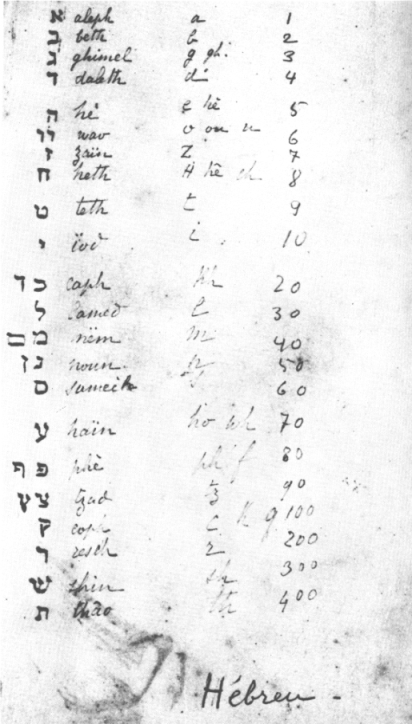 א aleph a 1
ב beth b 2
ג ghimel g gh. 3
ד daleth d 4
ה hé é hê 5
וי waw v ou u 6
ז zaïn Z 7
ח heth H hê ch 8
ט teth t 9
י ïod i 10
כך caph kh 20
ל lamed l 30
מם mêm m 40
נן noun 50
ס samech 60
ע haïn ho 70
פף phè ph f 80
צץ tzad tz 90
ק coph C K q 100
ר resch r 200
ש shin sh 300
ת thao th 400
Hébreu -